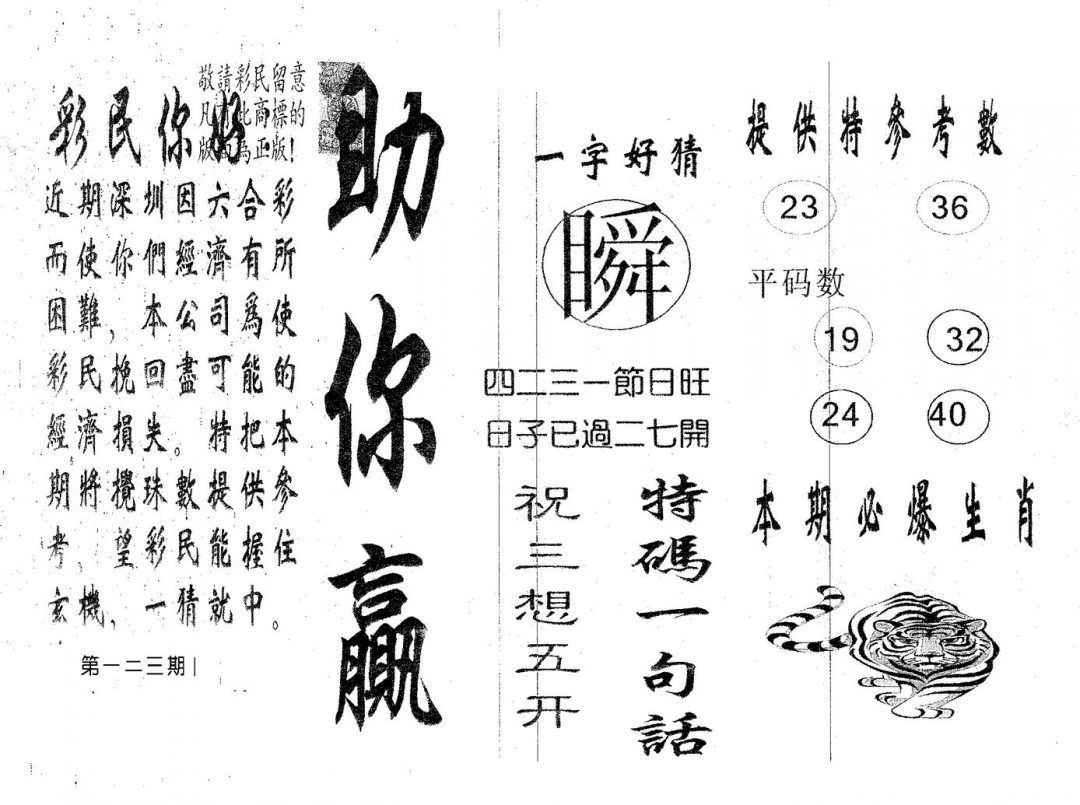 敬請彩民留意
凡 此商標的
版 為正版！
彩民你好
近期深圳因六合彩
而使你們經濟有所
困難，本公司爲使
彩民挽回盡可能的
經濟損失。特把本
期將攪珠數提供參
考，望彩民能握住
玄機，一猜就中。
第一二三期
助你贏
一字好猜
瞬
四二三一節日旺
日子已過二七開
特碼一句話
祝三想五开
提供特參考數
23 36
平码数
19 32
24 40
本期必爆生肖